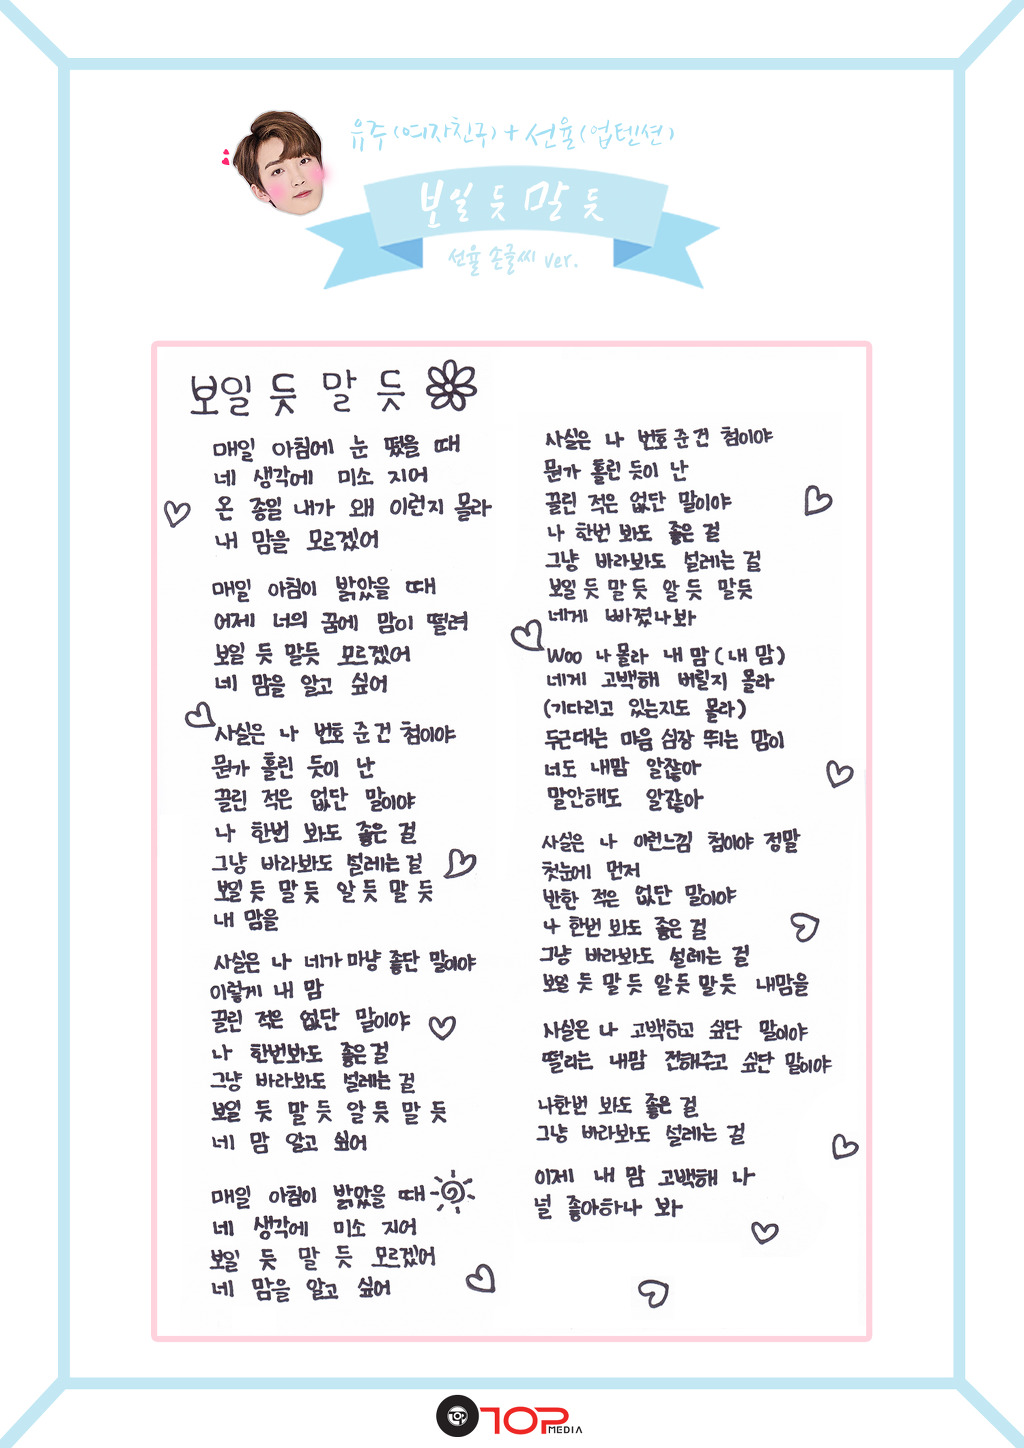 유주(여자친구) + 선율(업텐션)
보일 듯 말 듯
선율 손글씨 ver.
보일 듯 말 듯
매일 아침에 눈 떴을 때
네 생각에 미소 지어
온 종일 내가 왜 이런지 몰라
내 맘을 모르겠어
매일 아침이 밝았을 때
어제 너의 꿈에 맘이 떨려
보일 듯 말듯 모르겠어
네 맘을 알고 싶어
사실은 나 번호 준 건 첨이야
뭔가 홀린 듯이 난
끌린 적은 없단 말이야
나 한번 봐도 좋은 걸
그냥 바라봐도 설레는 걸
보일 듯 말 듯 알 듯 말 듯
내 맘을
사실은 나 네가 마냥 좋단 말이야
이렇게 내 맘
끌린 적은 없단 말이야
나 한번봐도 좋은 걸
그냥 바라봐도 설레는 걸
보일 듯 말 듯 알 듯 말 듯
네 맘 알고 싶어
매일 아침이 밝았을 때
네 생각에 미소 지어
보일 듯 말 듯 모르겠어
네 맘을 알고 싶어
사실은 나 번호 준 건 첨이야
뭔가 홀린 듯이 난
끌린 적은 없단 말이야
나 한번 봐도 좋은 걸
그냥 바라봐도 설레는 걸
보일 듯 말 듯 알 듯 말듯
네게 빠졌나봐
Woo 나 몰라 내 맘 (내 맘)
네게 고백해 버릴지 몰라
(기다리고 있는지도 몰라)
두근대는 마음 심장 뛰는 맘이
너도 내맘 알잖아
말안해도 알잖아
사실은 나 이런느낌 첨이야 정말
첫눈에 먼저
반한 적은 없단 말이야
나 한번 봐도 좋은 걸
그냥 바라봐도 설레는 걸
보일 듯 말 듯 알 듯 말 듯 내맘을
사실은 나 고백하고 싶단 말이야
떨리는 내맘 전해주고 싶단 말이야
나한번 봐도 좋은 걸
그냥 바라봐도 설레는 걸
이제 내 맘 고백해 나
널 좋아하나 봐
TOP
TOP MEDIA